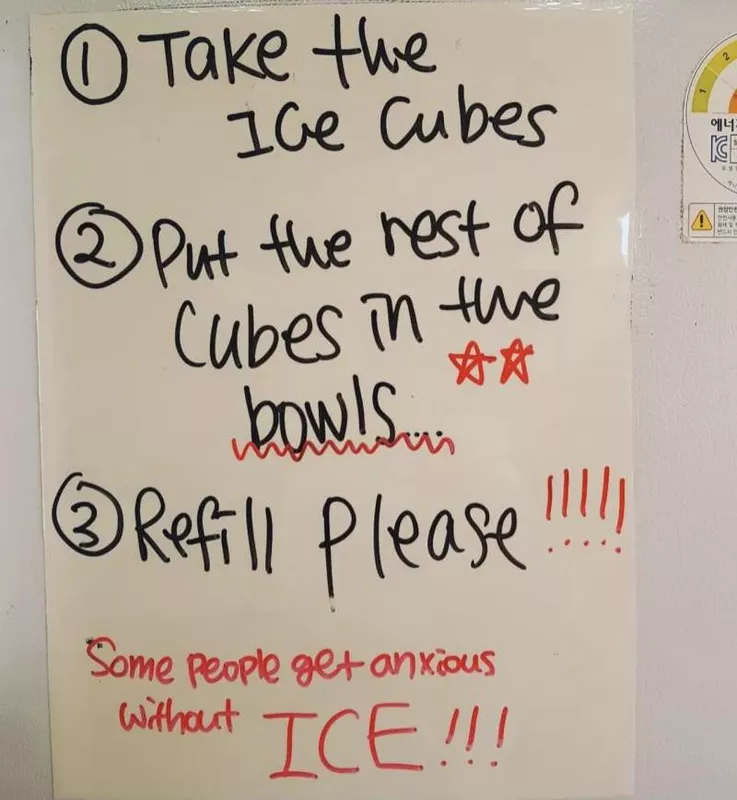 ① Take the
Ice Cubes
② Put the rest of
Cubes in the
bowls...
③ Refill please !!!!!
Some people get anxious
without ICE!!!
1
2
에너지